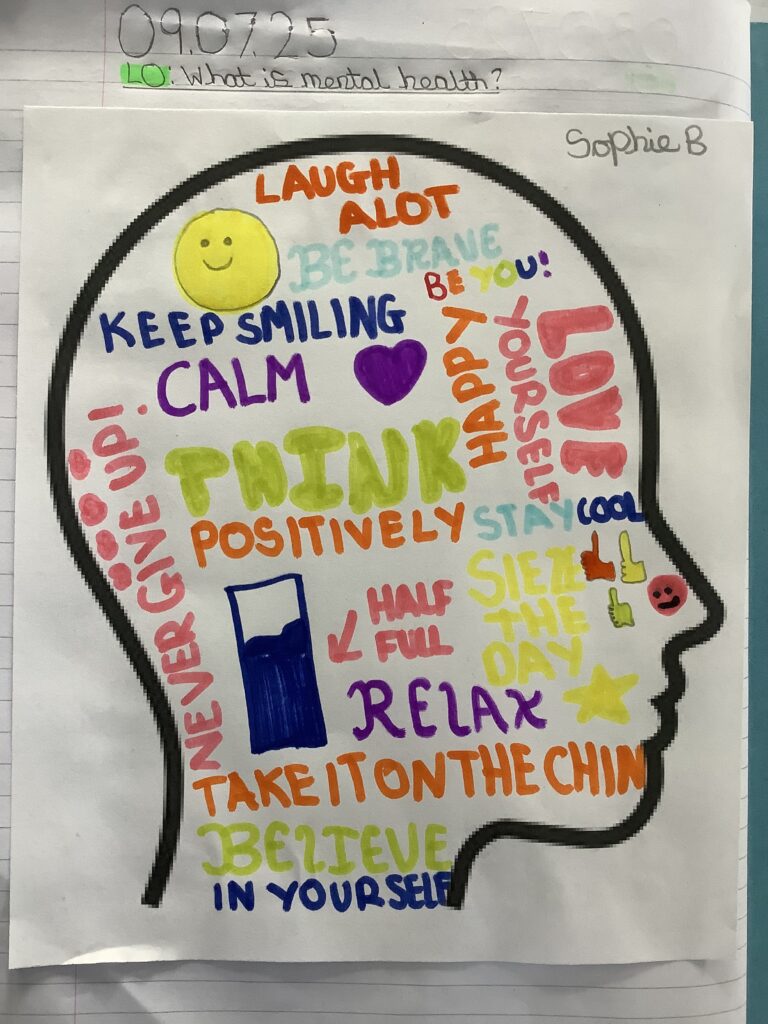 09.07.25
LO: What is mental health?
Sophie B
LAUGH
ALOT
BE BRAVE
BE YOU!
KEEP SMILING
CALM
HAPPY
LOVE
YOURSELF
NEVER GIVE UP!
THINK
POSITIVELY
STAY COOL
SIEZE
THE
DAY
HALF
FULL
RELAX
TAKE IT ON THE CHIN
BELIEVE
IN YOURSELF